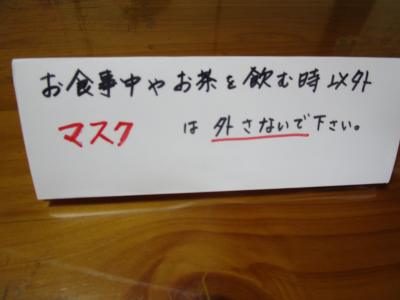 お食事中やお茶を飲む時以外
マスク は 外さないで下さい。